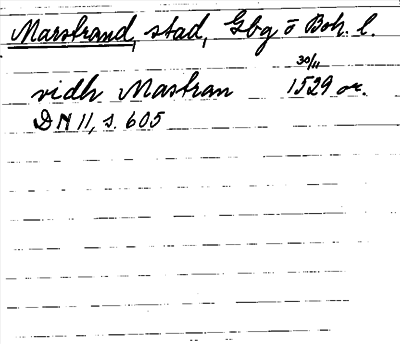 Marstrand, stad, Gbg o Boh. l.
30/11
vidh Mastran 1529 or.
DN 11, s. 605